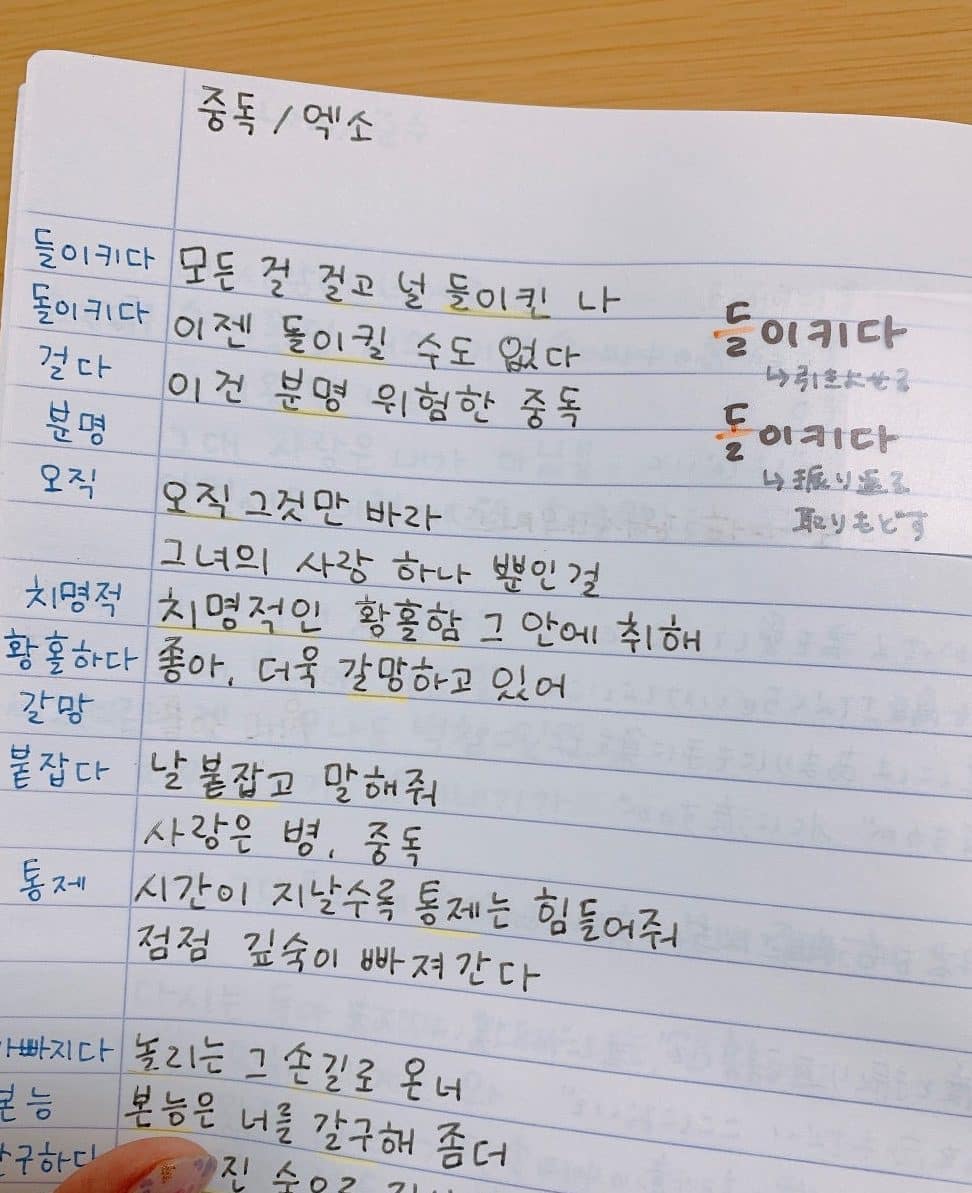 중독 / 엑소
들이키다
모든 걸 걸고 널 들이킨 나
돌이키다
이젠 돌이킬 수도 없다
걸다
이건 분명 위험한 중독
분명
오직
오직 그것만 바라
그녀의 사랑 하나 뿐인걸
치명적
치명적인 황홀함 그 안에 취해
황홀하다
좋아, 더욱 갈망하고 있어
갈망
붙잡다
날 붙잡고 말해줘
사랑은 병, 중독
통제
시간이 지날수록 통제는 힘들어줘
점점 깊숙이 빠져간다
빠지다
놀리는 그 손길로 온 너
본능
본능은 너를 갈구해 좀더
구하다
진 숨으로
들이키다
↳引きよせる
돌이키다
↳振り返る
取りもどす